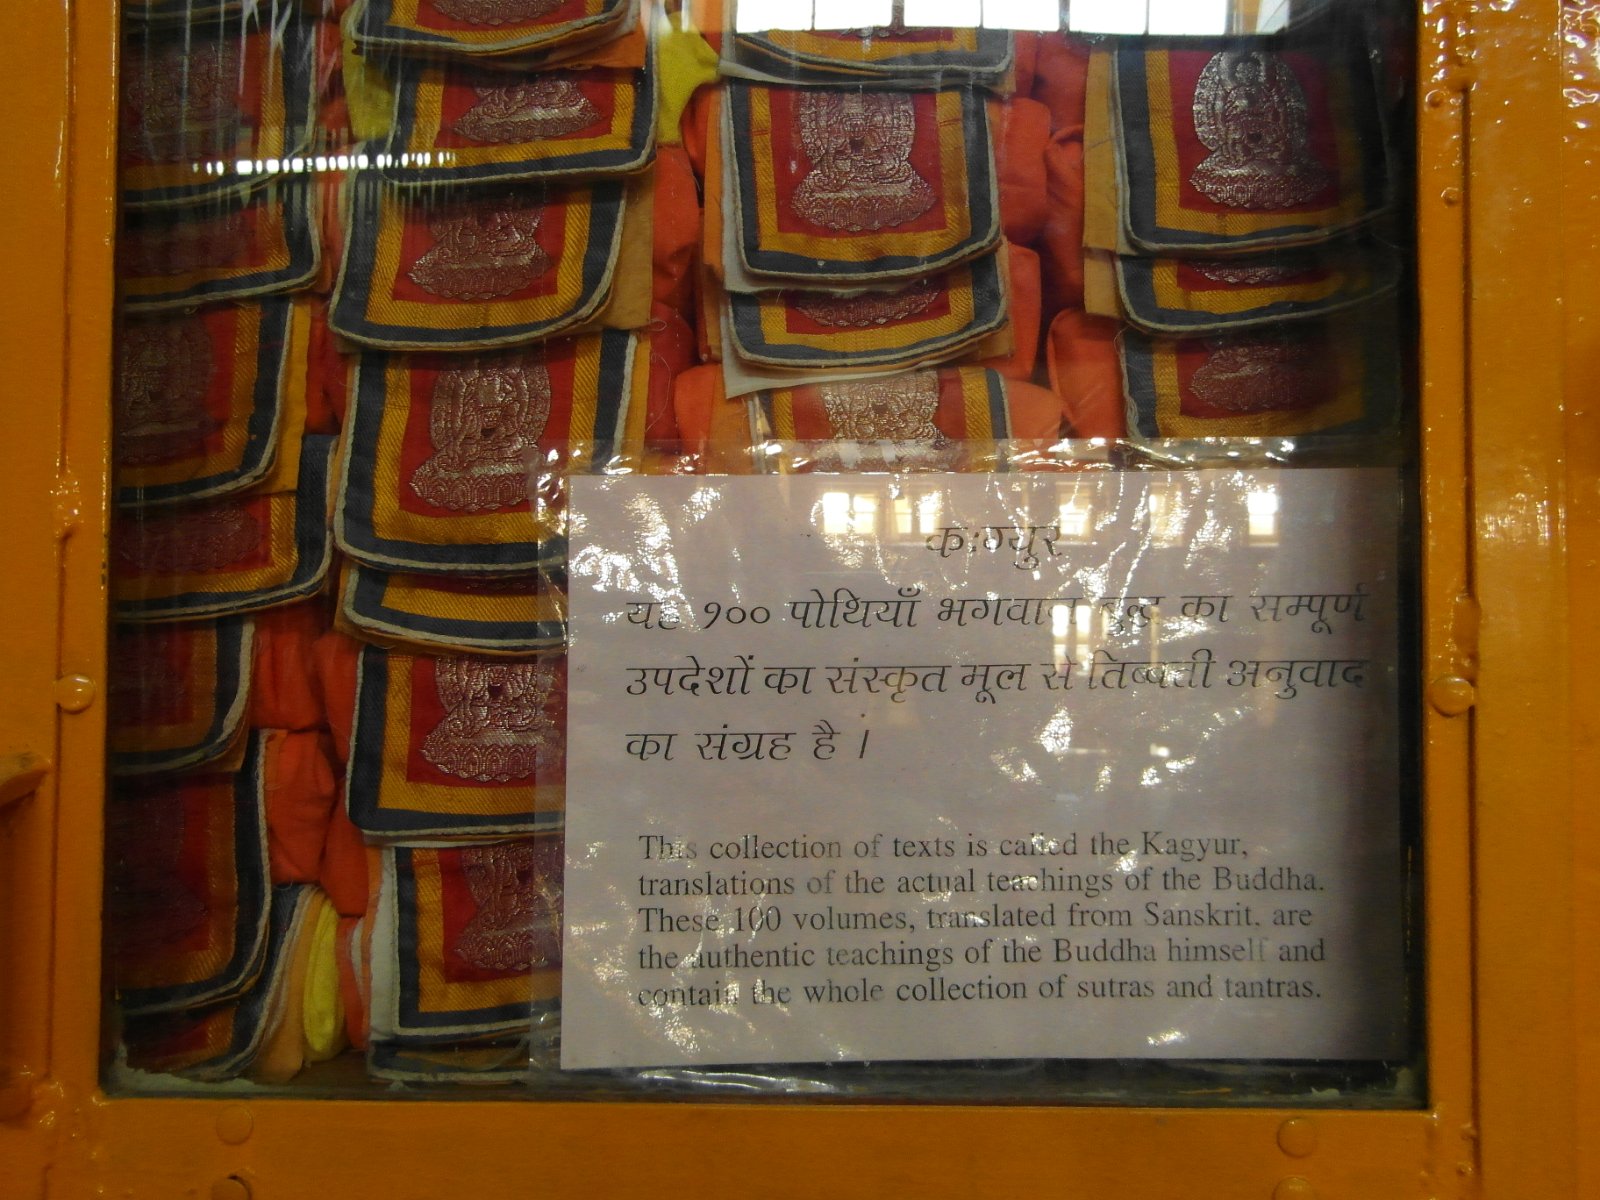 कःग्युर
यह १०० पोथियाँ भगवान बुद्ध का सम्पूर्ण
उपदेशों का संस्कृत मूल से तिब्बती अनुवाद
का संग्रह है ।
This collection of texts is called the Kagyur,
translations of the actual teachings of the Buddha.
These 100 volumes, translated from Sanskrit, are
the authentic teachings of the Buddha himself and
contain the whole collection of sutras and tantras.